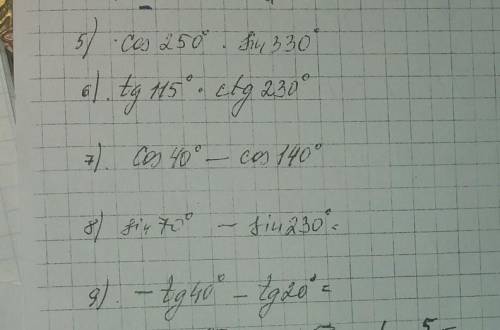 5) cos 250° · sin 330°
6). tg 115° · ctg 230°
7). cos 40° – cos 140°
8) sin 70° – sin 230° =
9). – tg 40° – tg 20° =